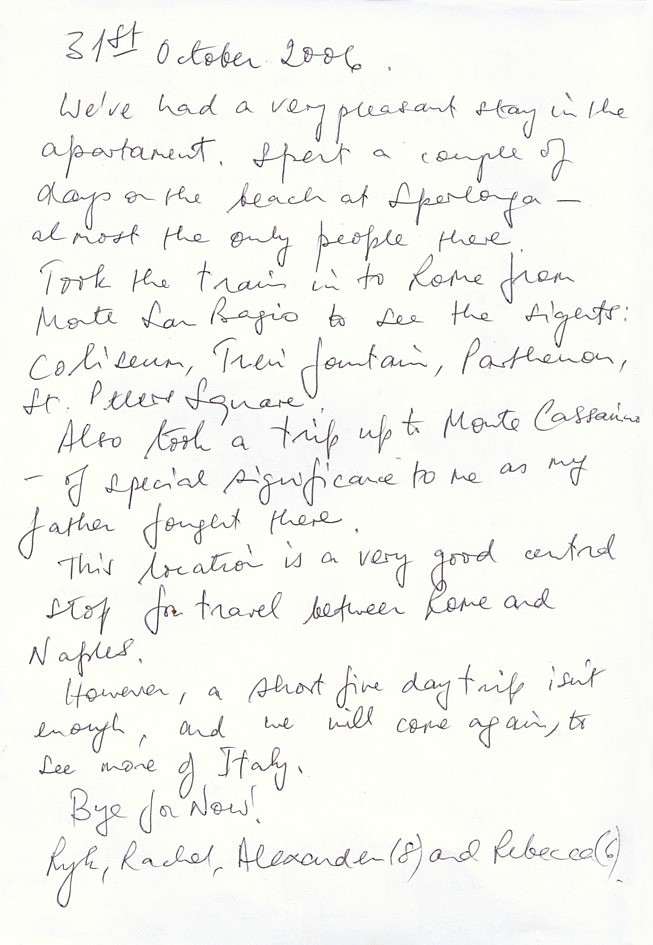 31st October 2006.
We've had a very pleasant stay in the
apartament. Spent a couple of
days on the beach at Sperlonga –
almost the only people there.
Took the train in to Rome from
Monte San Bagio to see the sights:
Coliseum, Trevi fountain, Parthenon,
St. Peters Square.
Also took a trip up to Monte Cassino
– of special significance to me as my
father fought there.
This location is a very good central
stop for travel between Rome and
Naples.
However, a short five day trip isn't
enough, and we will come again, to
see more of Italy.
Bye for Now!
Ryk, Rachel, Alexander (8) and Rebecca (6).